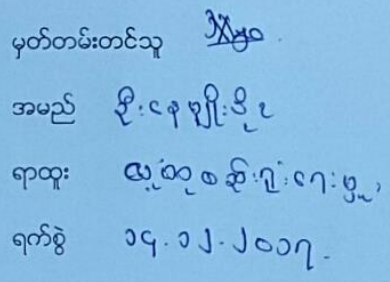 မှတ်တမ်းတင်သူ
အမည် ဦးနေမျိုး
ရာထူး လူ့ စည်းရုံးရေးမှူး
ရက်စွဲ ၁၄.၁၂.၂၀၁၇.